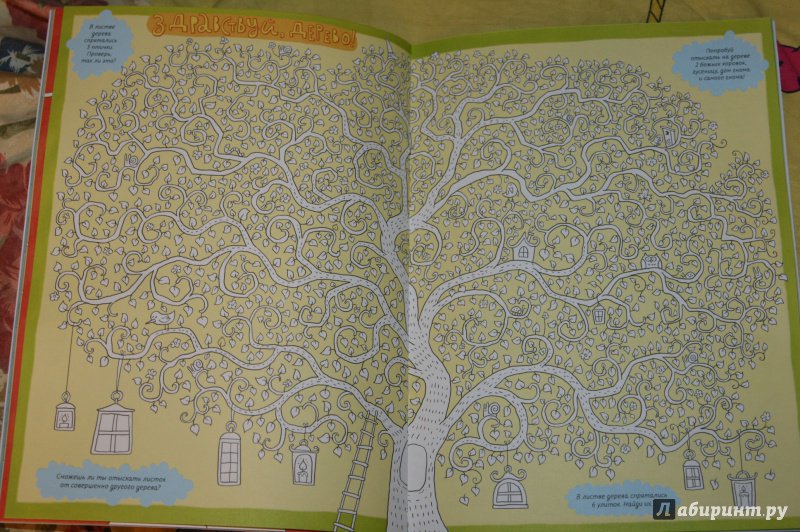 Здравствуй, дерево!
В листве
дерева
спрятались
3 птички.
Проверь,
так ли это?
Попробуй
отыскать на дереве
2 божьих коровок,
гусеницу, дом гнома
и самого гнома!
Сможешь ли ты отыскать листок
от совершенно другого дерева?
В листве дерева спрятались
6 улиток. Найди их
Лабиринт.ру